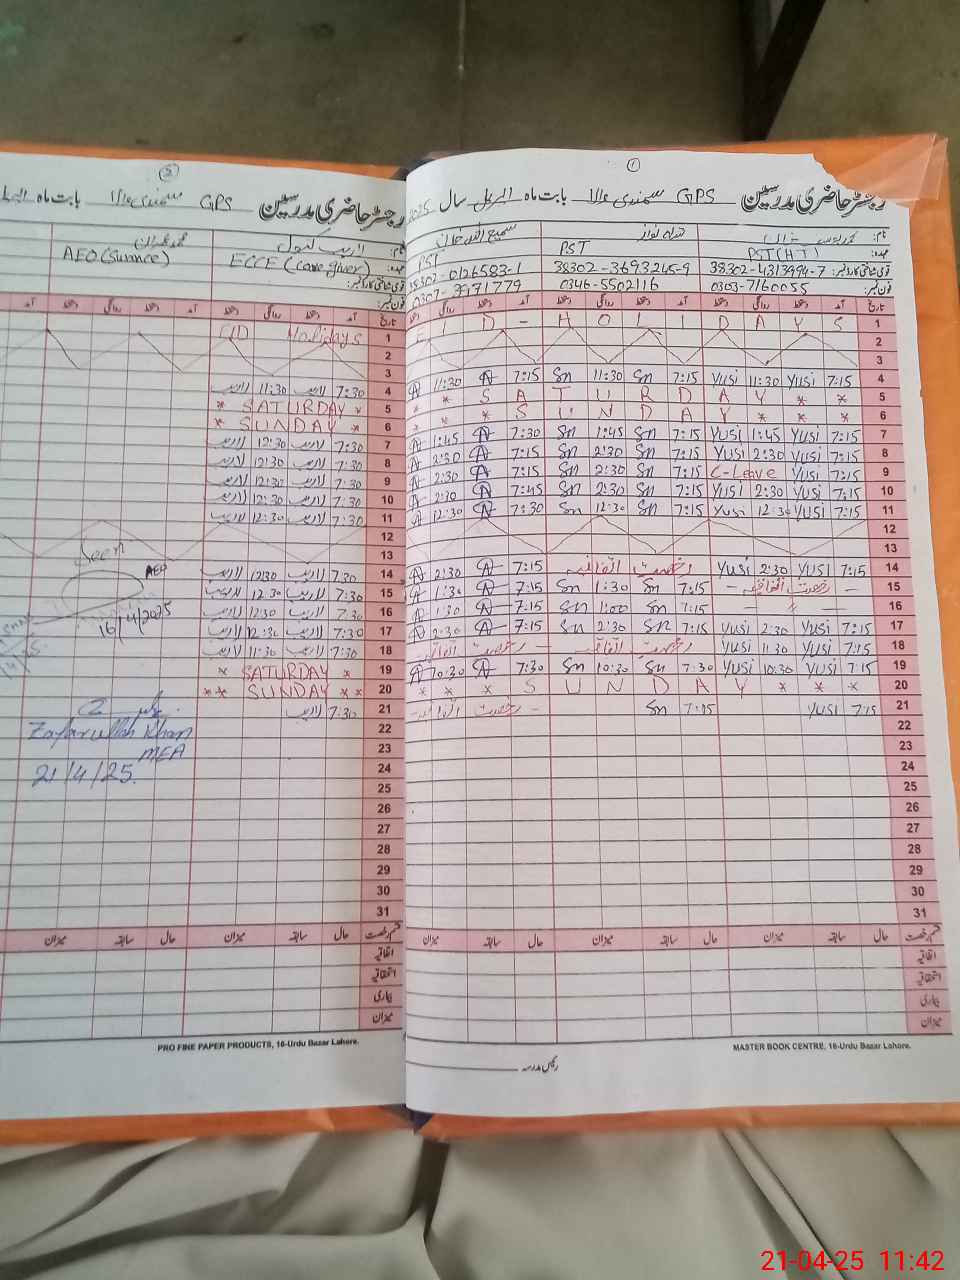 ①
رجسٹر حاضری مدرسین GPS سمندی والا بابت ماہ اپریل سال 2025
نام:
عہدہ: PST(H.T) PST PST
قومی شناختی کارڈ نمبر: 38302-4313994-7 38302-3693245-9 38302-0126583-1
فون نمبر: 0303-7160055 0346-5502116
تاریخ آمد دستخط روانگی دستخط آمد دستخط روانگی دستخط آمد دستخط روانگی دستخط
1 EID - HOLIDAYS
2
3
4 7:15 Yusi 11:30 Yusi 7:15 Sn 11:30 Sn 7:15 11:30
5 * * SATURDAY * *
6 * * SUNDAY * * *
7 7:15 Yusi 1:45 Yusi 7:15 Sn 1:45 Sn 7:30 1:45
8 7:15 Yusi 2:30 Yusi 7:15 Sn 2:30 Sn 7:15 2:30
9 7:15 Yusi C-Leave 7:15 Sn 2:30 Sn 7:15 2:30
10 7:15 Yusi 2:30 Yusi 7:15 Sn 2:30 Sn 7:45
11 7:15 Yusi 12:30 Yusi 7:15 Sn 12:30 Sn 7:30 12:30
12
13
14 7:15 Yusi 2:30 Yusi رخصت اتفاقیہ 7:15 2:30
15 - رخصت اتفاقیہ - 7:15 Sn 1:30 Sn 7:15 1:30
16 7:15 Sn 1:00 Sn 7:15 1:30
17 7:15 Yusi 2:30 Yusi 7:15 Sn 2:30 Sn 7:15 2:30
18 7:15 Yusi 11:30 Yusi رخصت اتفاقیہ رخصت اتفاقیہ
19 7:15 Yusi 10:30 Yusi 7:30 Sn 10:30 Sn 7:30 10:30
20 * * * SUNDAY * * *
21 7:15 Yusi 7:15 Sn - رخصت اتفاقیہ -
22
23
24
25
26
27
28
29
30
31
قسم رخصت حال سابقہ میزان حال سابقہ میزان حال سابقہ میزان
اتفاقیہ
استحقاقیہ
بیماری
میزان
MASTER BOOK CENTRE, 16-Urdu Bazar Lahore.
رئیس مدرسہ
②
رجسٹر حاضری مدرسین GPS سمندی والا بابت ماہ
نام:
عہدہ: ECCE (care giver) AEO (Sunnce)
قومی شناختی کارڈ نمبر:
فون نمبر:
تاریخ آمد دستخط روانگی دستخط آمد دستخط روانگی دستخط آمد
1 EID Holidays
2
3
4 7:30 لاریب 11:30 لاریب
5 * SATURDAY *
6 * SUNDAY *
7 7:30 لاریب 12:30 لاریب
8 7:30 لاریب 12:30 لاریب
9 7:30 لاریب 12:30 لاریب
10 7:30 لاریب 12:30 لاریب
11 7:30 لاریب 12:30 لاریب
12
13 Seen
14 7:30 لاریب 12:30 لاریب AEO
15 7:30 لاریب 12:30 لاریب
16 7:30 لاریب 12:30 لاریب 16/4/2025
17 7:30 لاریب 12:30 لاریب
18 7:30 لاریب 11:30 لاریب
19 * SATURDAY *
20 ** SUNDAY **
21 7:30 لاریب
22 Zafarullah Khan
23 MEA
24 21/4/25.
25
26
27
28
29
30
31
قسم رخصت حال سابقہ میزان حال سابقہ میزان
اتفاقیہ
استحقاقیہ
بیماری
میزان
PRO FINE PAPER PRODUCTS, 16-Urdu Bazar Lahore.
21-04-25 11:42